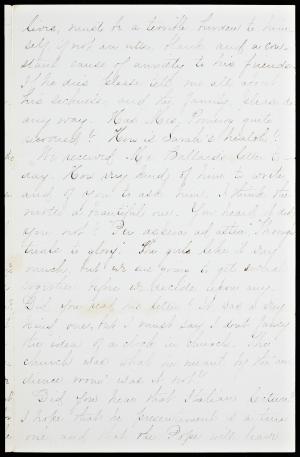 lieve, must be a terrible burden to him
self, if not an utter blank and a con
stant cause of anxiety to his friends
If he dies please tell me all about
his sickness and the family, please do
any way. Has Mrs. Pomeroy quite
recovered? How is Sarah's health?
We received Mr. Ballard's letter to-
day. How very kind of him to write
and of you to ask him. I think the
motto a beautiful one. You heard it did
you not? "Per aspera ad astra" Through
trials to glory." The girls like it very
much, but we are going to get several
together before we decide upon any.
Did you read his letter? It was a very
kind one, but I must say I don't fancy
the idea of a clock in church. The
church was what he meant by the "au
dience room" was it not?
Did you hear that Italian lecture?
I hope that his presentiment is a true
one and that the Pope will leave